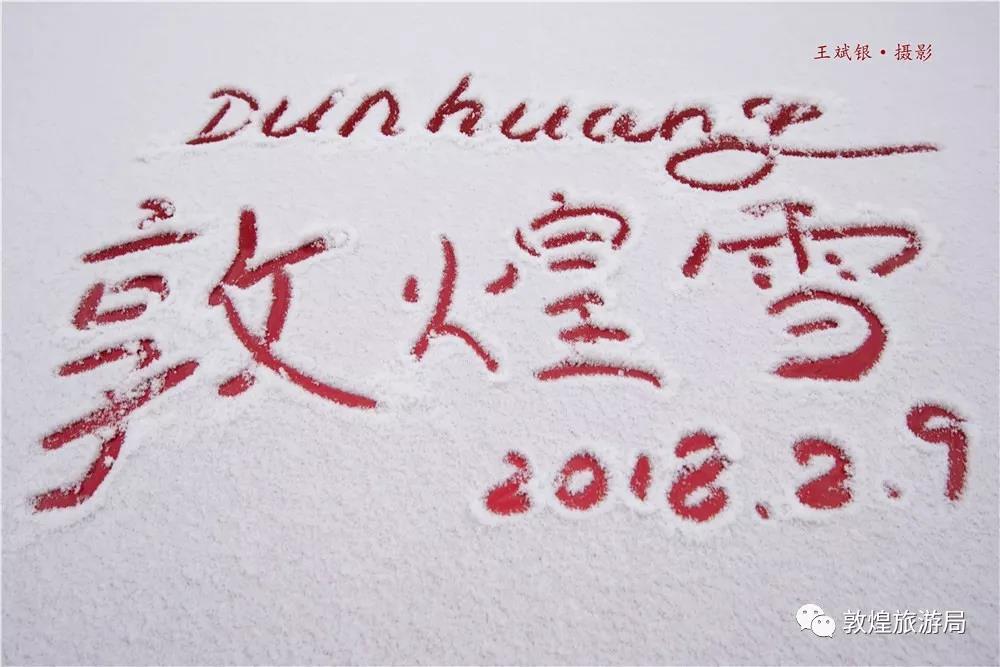 王斌银·摄影
Dunhuang
敦煌雪
2018.2.9
敦煌旅游局